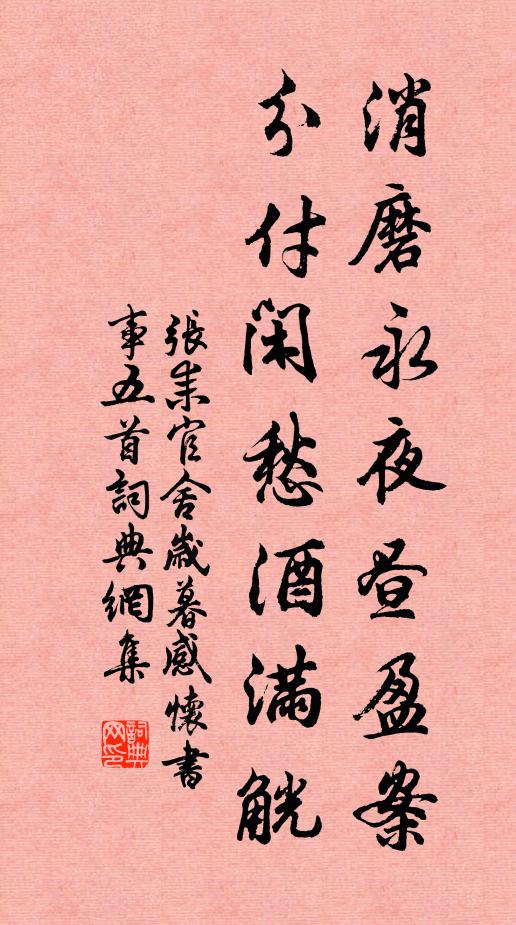 消磨永夜昼盈案
分付閑愁酒滿觥
張耒官舍歲暮感懷書
事五首詞典網集
詞典网印